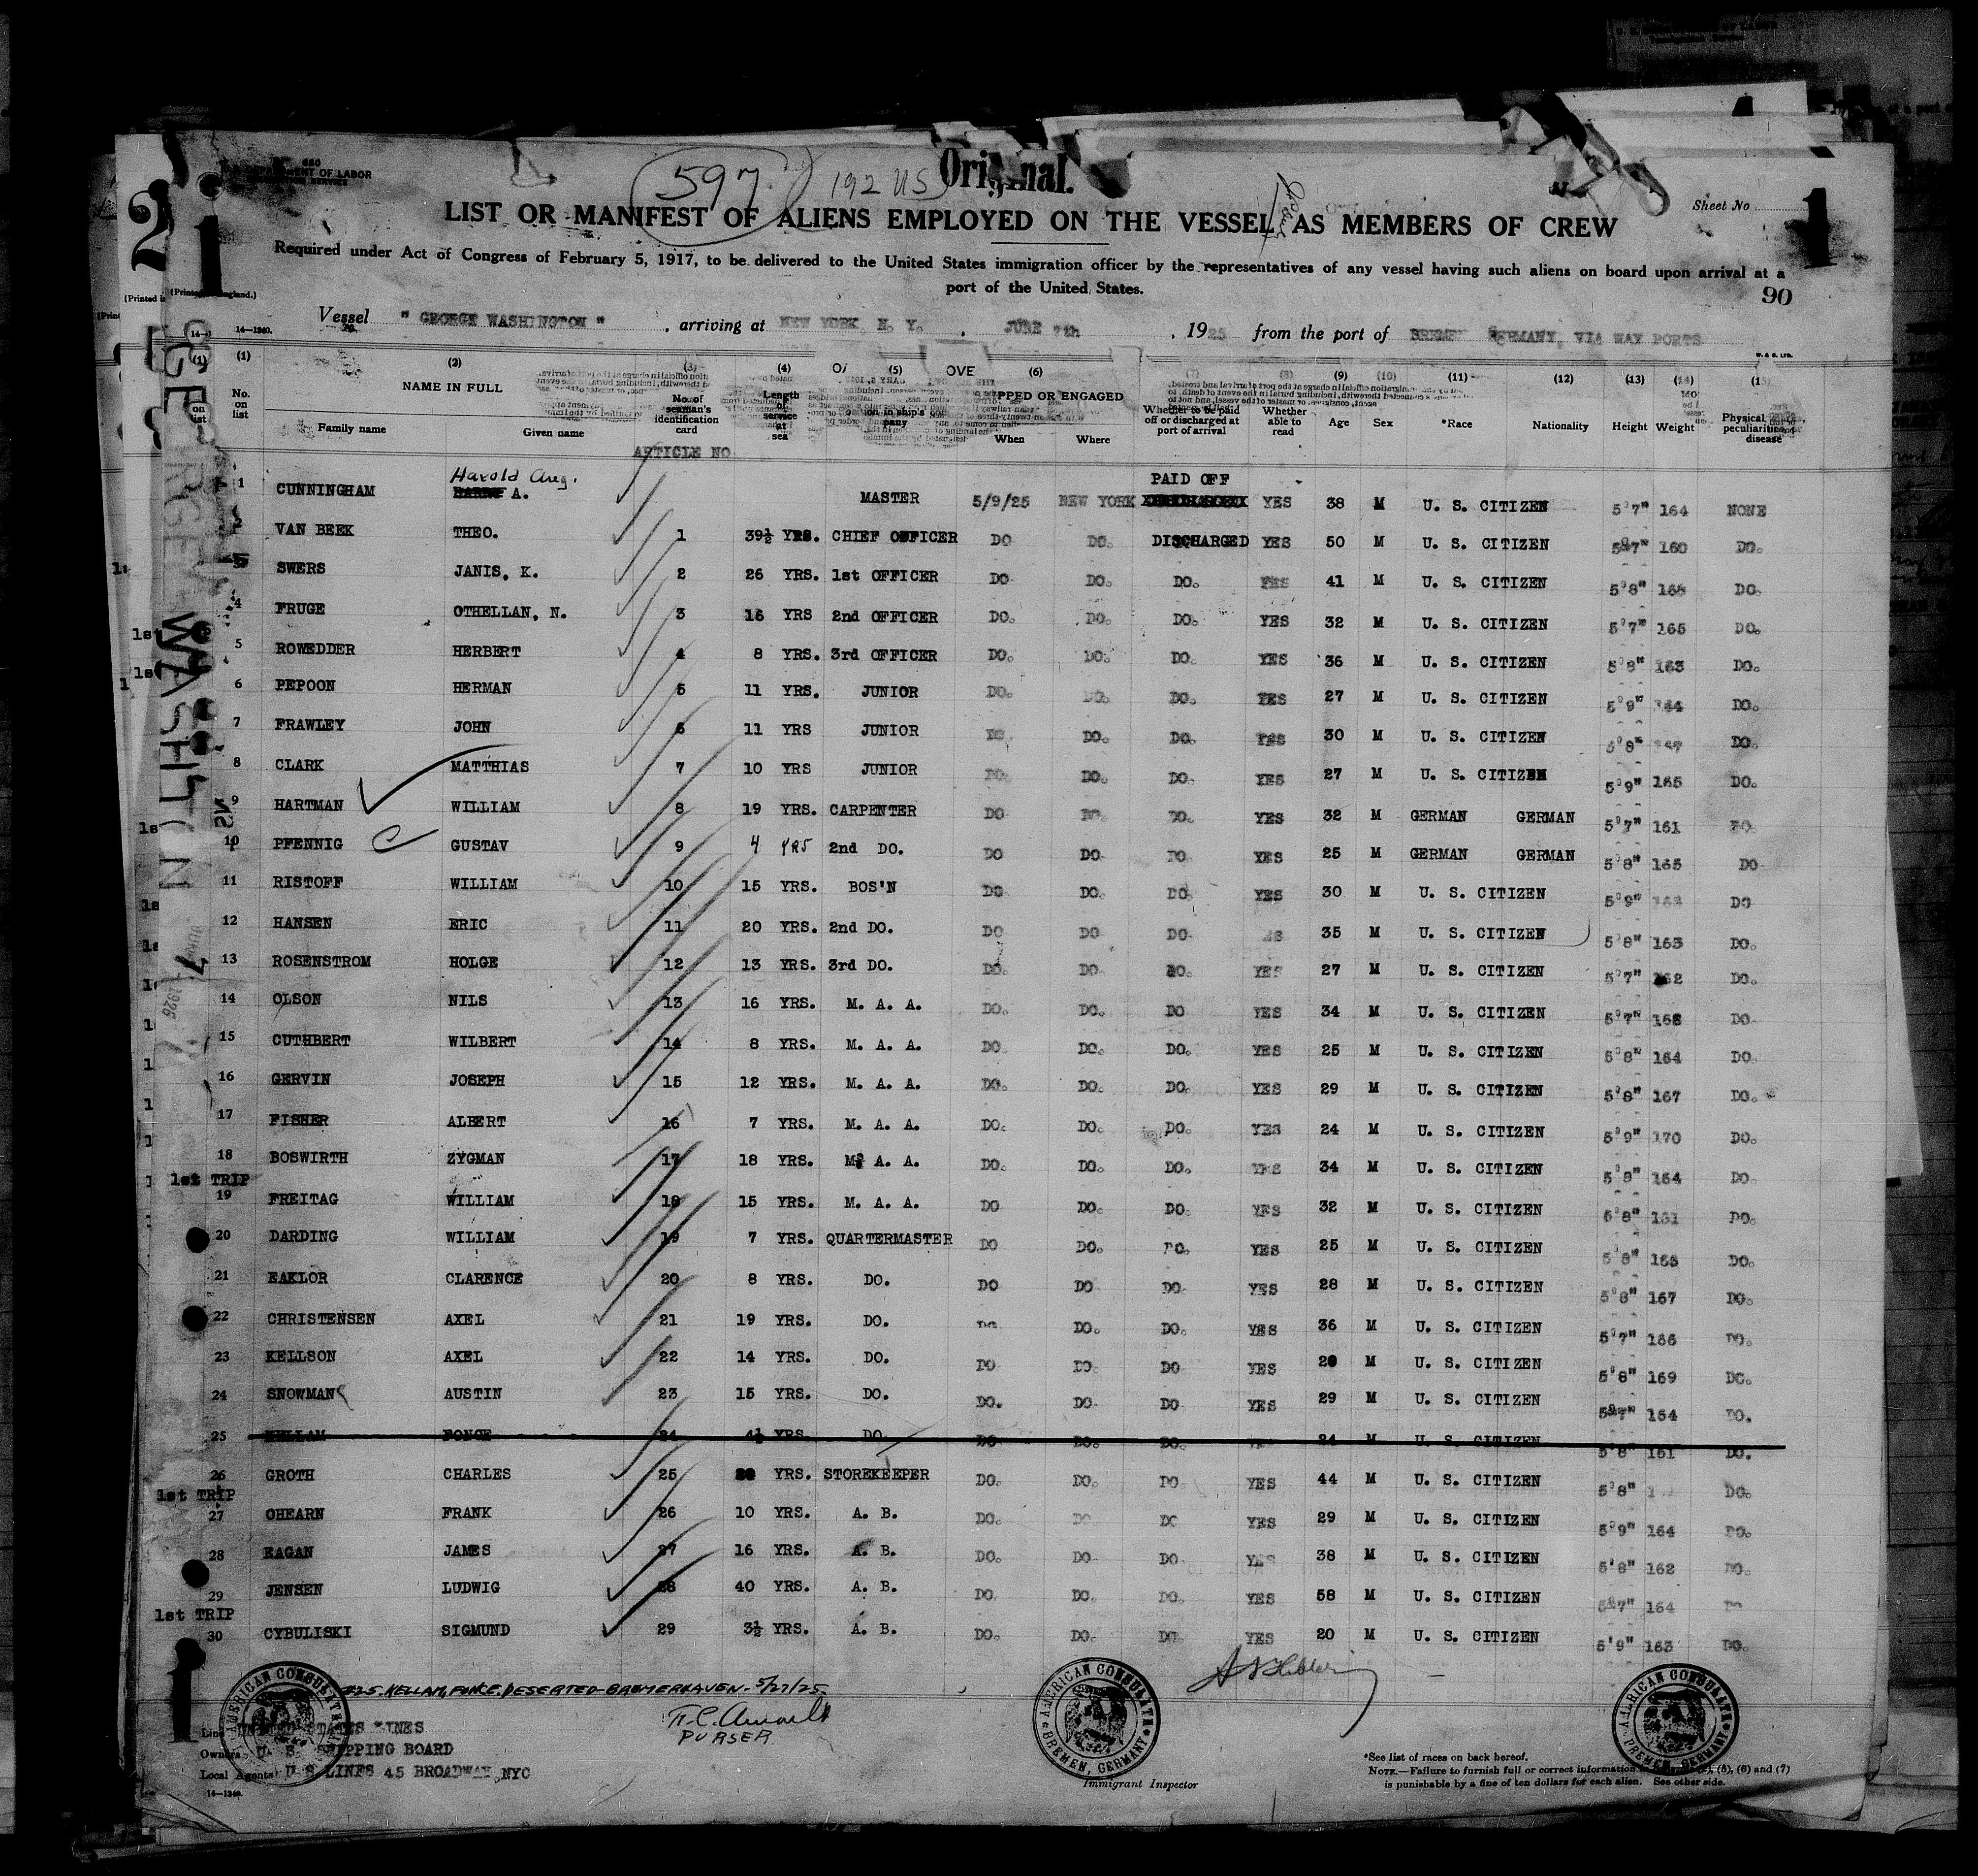 597. 192 US Original.
DEPARTMENT OF LABOR
Sheet No
2 1 1
LIST OR MANIFEST OF ALIENS EMPLOYED ON THE VESSEL AS MEMBERS OF CREW
Required under Act of Congress of February 5, 1917, to be delivered to the United States immigration officer by the representatives of any vessel having such aliens on board upon arrival at a
port of the United States.
90
Vessel " GEORGE WASHINGTON ", arriving at NEW YORK, N. Y., JUNE 7th, 1925 from the port of BREMEN GERMANY, VIA WAY PORTS
14—1240.
W. & S. LTD.
(1) (2) (3) (4) (5) (6) (7) (8) (9) (10) (11) (12) (13) (14)
No. on list NAME IN FULL Family name Given name No. of seaman's identification card Length of service at sea SHIPPED OR ENGAGED When Where Whether to be paid off or discharged at port of arrival Whether able to read Age Sex *Race Nationality Height Weight Physical peculiarities, disease
ARTICLE NO
1 CUNNINGHAM Harold Aug. A. MASTER 5/9/25 NEW YORK PAID OFF YES 38 M U. S. CITIZEN 5'7" 164 NONE
2 VAN BEEK THEO. 1 39½ YRS. CHIEF OFFICER DO DO. DISCHARGED YES 50 M U. S. CITIZEN 5'7" 160 DO.
3 SWERS JANIS, K. 2 26 YRS. 1st OFFICER DO DO. DO. YES 41 M U. S. CITIZEN 5'8" 165 DO.
4 FRUGE OTHELLAN, N. 3 16 YRS 2nd OFFICER DO. DO. DO. YES 32 M U. S. CITIZEN 5'7" 165 DO.
5 ROWEDDER HERBERT 4 8 YRS. 3rd OFFICER DO. DO. DO. YES 36 M U. S. CITIZEN 5'8" 163 DO.
6 PEPOON HERMAN 5 11 YRS. JUNIOR DO. DO. DO. YES 27 M U. S. CITIZEN 5'9" 164 DO.
7 FRAWLEY JOHN 6 11 YRS JUNIOR DO. DO. DO. YES 30 M U. S. CITIZEN 5'8" DO.
8 CLARK MATTHIAS 7 10 YRS JUNIOR DO. DO. DO. YES 27 M U. S. CITIZEN 5'9" 165 DO.
9 HARTMAN WILLIAM 8 19 YRS. CARPENTER DO DO. DO. YES 32 M GERMAN GERMAN 5'7" 161 DO.
10 PFENNIG GUSTAV 9 4 YRS 2nd DO. DO DO DO YES 25 M GERMAN GERMAN 5'8" 165 DO
11 RISTOFF WILLIAM 10 15 YRS. BOS'N DO DO DO YES 30 M U. S. CITIZEN 5'9" DO
12 HANSEN ERIC 11 20 YRS. 2nd DO. DO DO DO YES 35 M U. S. CITIZEN 5'8" 163 DO.
13 ROSENSTROM HOLGE 12 13 YRS. 3rd DO. DO. DO DO. YES 27 M U. S. CITIZEN 5'7" 162 DO.
14 OLSON NILS 13 16 YRS. M. A. A. DO. DO. DO YES 34 M U. S. CITIZEN 5'7" 168 DO
15 CUTHBERT WILBERT 14 8 YRS. M. A. A. DO DO. DO. YES 25 M U. S. CITIZEN 5'8" 164 DO.
16 GERVIN JOSEPH 15 12 YRS. M. A. A. DO. DO. DO. YES 29 M U. S. CITIZEN 5'8" 167 DO.
17 FISHER ALBERT 16 7 YRS. M. A. A. DO. DO. DO. YES 24 M U. S. CITIZEN 5'9" 170 DO.
18 BOSWIRTH ZYGMAN 17 18 YRS. M. A. A. DO. DO. DO. YES 34 M U. S. CITIZEN 5'8" 164 DO
1st TRIP
19 FREITAG WILLIAM 18 15 YRS. M. A. A. DO DO. DO. YES 32 M U. S. CITIZEN 5'8" 161 DO.
20 DARDING WILLIAM 19 7 YRS. QUARTERMASTER DO DO. DO. YES 25 M U. S. CITIZEN 5'8" 165 DO.
21 EAKLOR CLARENCE 20 8 YRS. DO. DO DO DO. YES 28 M U. S. CITIZEN 5'8" 167 DO.
22 CHRISTENSEN AXEL 21 19 YRS. DO. DO. DO. DO. YES 36 M U. S. CITIZEN 5'7" 166 DO.
23 KELLSON AXEL 22 14 YRS. DO. DO DO DO YES 28 M U. S. CITIZEN 5'8" 169 DO.
24 SNOWMAN AUSTIN 23 15 YRS. DO. DO. DO. DO YES 29 M U. S. CITIZEN 5'7" 164 DO.
25 KELLAM PONCE 24 4½ YRS. DO. DO DO. DO. YES 24 M U. S. CITIZEN 5'8" 161 DO.
26 GROTH CHARLES 25 YRS. STOREKEEPER DO. DO. DO YES 44 M U. S. CITIZEN 5'8" DO.
1st TRIP
27 OHEARN FRANK 26 10 YRS. A. B. DO. DO DO YES 29 M U. S. CITIZEN 5'9" 164 DO.
28 EAGAN JAMES 27 16 YRS. A. B. DO. DO DO YES 38 M U. S. CITIZEN 5'8" 162 DO.
29 JENSEN LUDWIG 28 40 YRS. A. B. DO. DO DO. YES 58 M U. S. CITIZEN 5'7" 164 DO
1st TRIP
30 CYBULISKI SIGMUND 29 3½ YRS. A. B. DO. DO. DO. YES 20 M U. S. CITIZEN 5'9" 163 DO.
#25 KELLAM, PONCE, DESERTED-BREMERHAVEN-5/27/25
PURSER
Line UNITED STATES LINES
Owners U. S. SHIPPING BOARD
Local Agents U S LINES 45 BROADWAY, NYC
14—1240.
AMERICAN CONSULATE BREMEN, GERMANY
AMERICAN CONSULATE BREMEN, GERMANY
AMERICAN CONSULATE BREMEN, GERMANY
Immigrant Inspector
*See list of races on back hereof.
NOTE.—Failure to furnish full or correct information (5), (6) and (7)
is punishable by a fine of ten dollars for each alien. See other side.
GEORGE WASHINGTON
JUN 7 1925